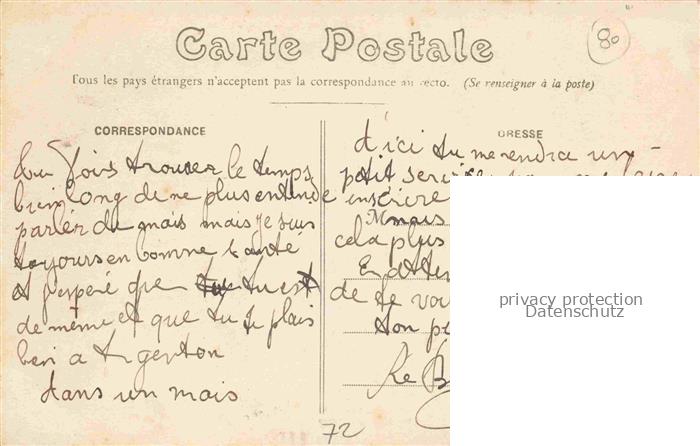 80
Carte Postale
Tous les pays étrangers n'acceptent pas la correspondance au recto. (Se renseigner à la poste)
CORRESPONDANCE
tu dois trouver le temps
bien long de ne plus entende
parler de mais mais je suis
toujours en bonne santé
et j'esperé que tu est
de même et que tu te plais
bien a Argenton
dans un mais
ADRESSE
d'ici tu me rendra un
petit
inscrire
mais
cela plus
En
de te
ton
Le B
72
privacy protection
Datenschutz